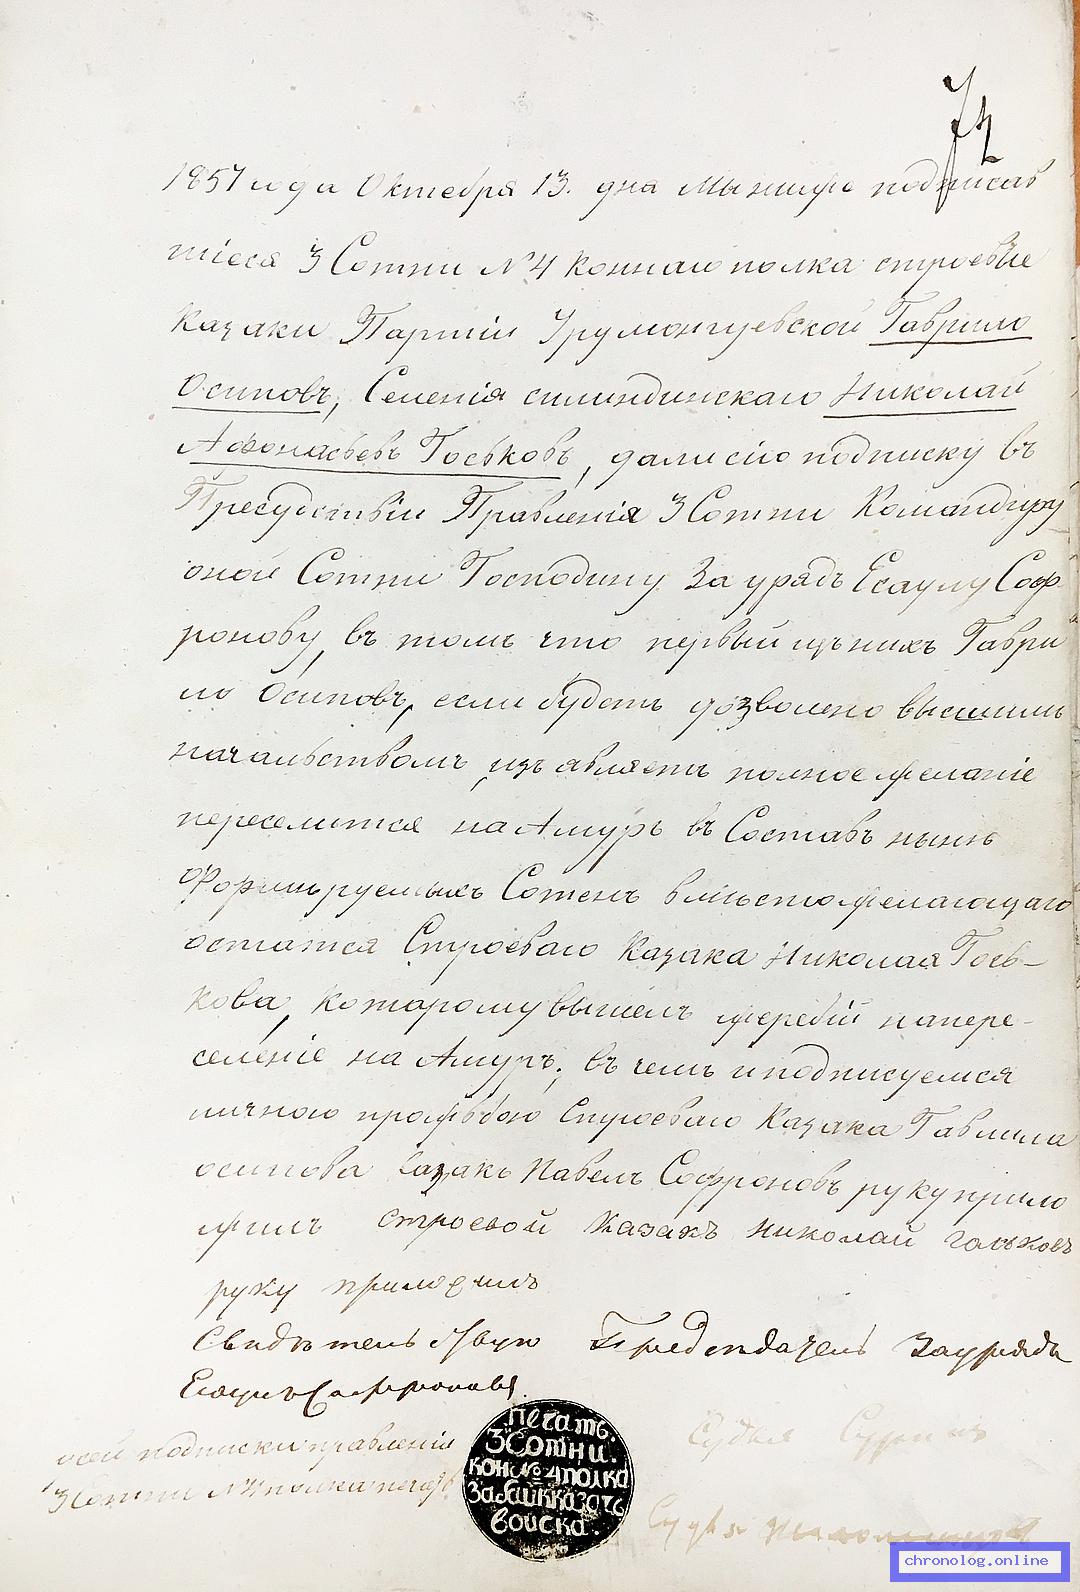 74
1857 года Октября 13. дня Мы нижѣ подписав
шіеся 3 Сотни №4 коннаго полка строевые
казаки Партіи Урумонгуевской Гаврило
Осиповъ, Селенія силиндинскаго Николай
Афонасьевъ Госьковъ, дали сію подписку въ
Пресудствіи Правленія 3 Сотни Командиру
оной Сотни Господину Зауряд Есаулу Соф-
ронову, въ томъ что первый изъ нихъ Гаври
ло Осиповъ, если будетъ дозволено высшимъ
начальствомъ, изъявляетъ полное желаніе
переселится на Амуръ въ Составъ нынѣ
Формируемыхъ Сотенъ вмѣсто желающаго
остатся Строеваго Казака Николая Гось-
кова, котарому вышелъ жеребій на пере-
селеніе на Амуръ; въ чемъ и подписуемся
личною прозьбою Строеваго Казака Гаврила
осипова Казакъ Павелъ Софроновъ руку прило
жилъ строевой Казакъ Николай Госьковъ
руку приложилъ
Свидѣтельствую Зaурядъ
Есаулъ Софроновъ
о сей подписки правленія
3 Сотни №4 полка
Судья
Судья
печать.
3 Сотни.
кон №4 полка
Забайк казачь
войска.
chronolog.online